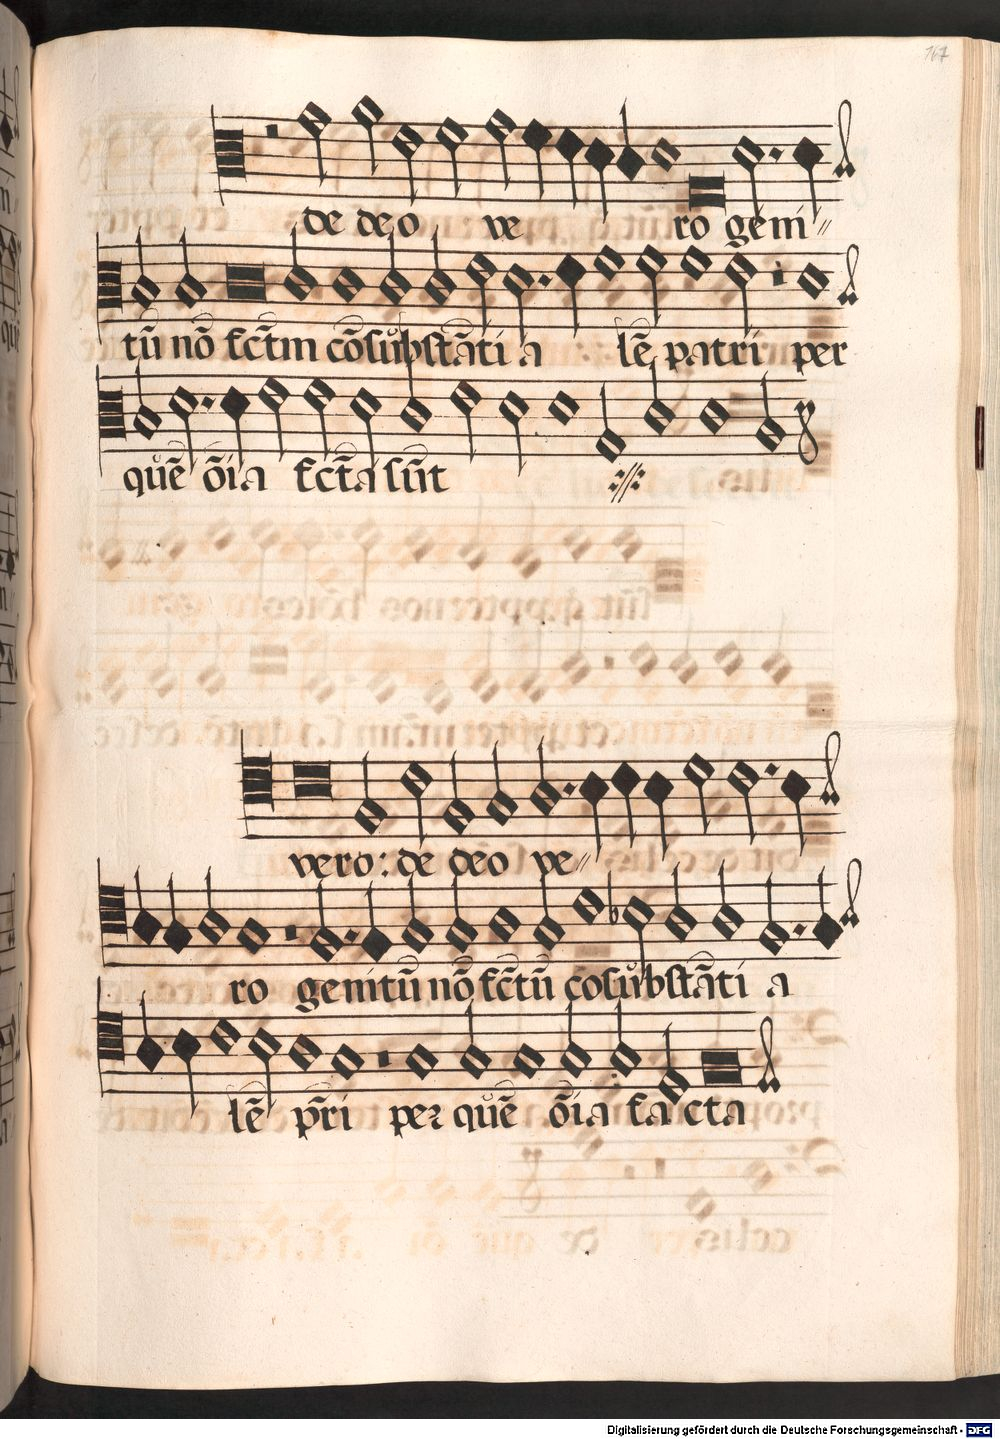 167
de deo ve ro geni〃
tū nō fct̄m cōsubstāti a lē patri per
quē ōia fct̄a sūt
vero: de deo ve〃
ro genitū nō fct̄ū cōsubstāti a
lē p̄ri per quē ōia facta
Digitalisierung gefördert durch die Deutsche Forschungsgemeinschaft - DFG